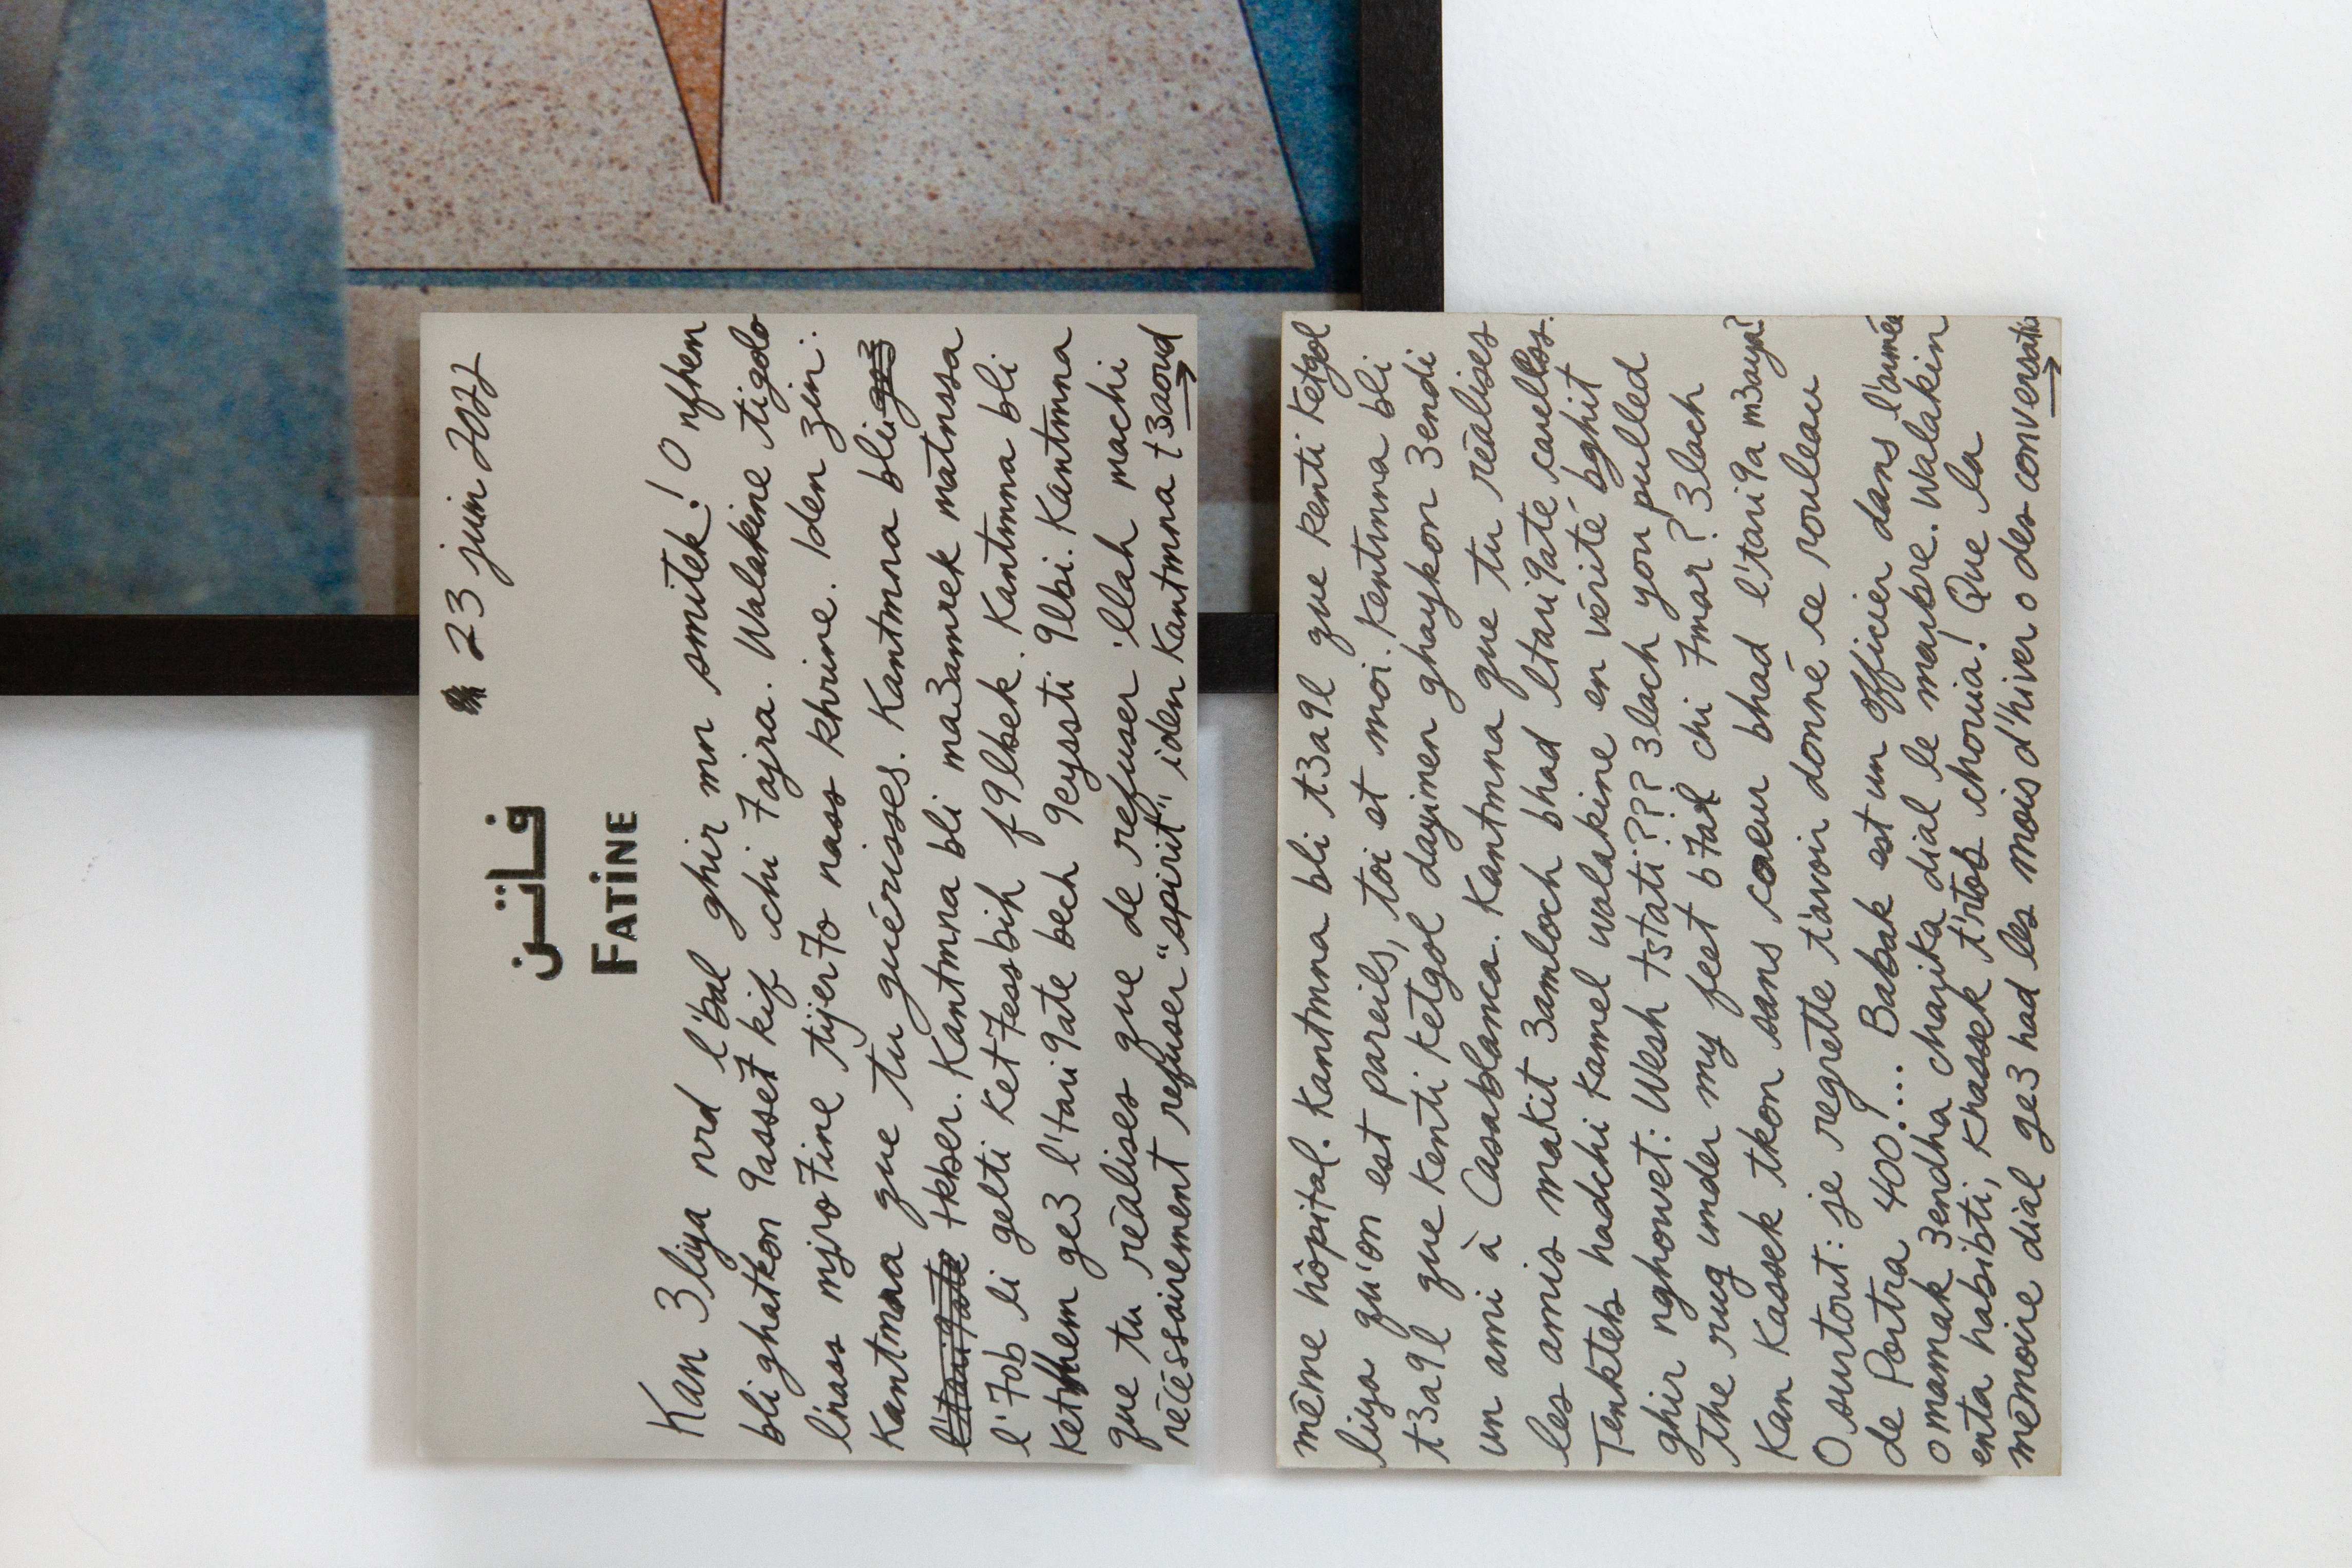 23 juin 2022
فاتن
FATINE
Kan 3liya nrd l'bal ghir mn smitek! O nfhem
bli ghatkon 9asse7 kif chi 7ajra. Walakine tigolo
lnass mjro7ine tijer7o nass khrine. Iden zin:
Kantmna que tu guérisses. Kantmna bli
l'tari9ate tkber. Kantmna bli ma3amrek matnssa
l'7ob li gelti ket7essbih f9lbek. Kantmna bli
ketfhem ge3 l'tari9ate bech 9eyssti 9lbi. Kantmna
que tu réalises que de refuser 'llah machi
nécéssairement refuser "spirit" iden Kantmna t3aoud
même hôpital. Kantmna bli t3a9l que kenti ketgol
liya qu'on est pareils, toi et moi. Kentmna bli
t3a9l que kenti ketgol dayimen ghaykon 3endi
un ami à Casablanca. Kantmna que tu réalises
les amis makit3amloch bhad ltari9ate cuellos.
Tenkteb hadchi kamel walakine en vérité bghit
ghir nghowet: Wesh tstati??? 3lach you pulled
the rug under my feet b7al chi 7mar? 3lach
Kan Kassek tkon sans coeur bhad l'tari9a m3aya?
O surtout: je regrette t'avoir donné ce rouleau
de Portra 400!.... Babak est un officier dans l'armée
o mamak 3endha charika dial le marbre. Walakin
enta habibti, Khassek t'rtob chouia! Que la
mémoire dial ge3 had les mois d'hiver o des conversatio